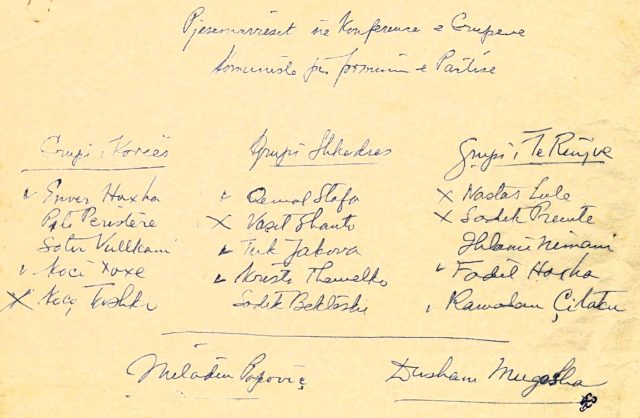 Pjesemarrësit në Konference e Grupeve
komuniste për formimin e Partise
Grupi i Korcës
Enver Hoxha
Pilo Peristere
Sotir Vullkani
Koci Xoxe
X Koço Tashko
Grupi Shkodres
Qemal Stafa
X Vasil Shanto
Tuk Jakova
Kristo Themelko
Sadik Bekteshi
Grupi i Te Rinjve
X Nastas Lule
X Sadik Premte
Xhlami Nimani
Fadil Hoxha
Ramadan Çitaku
Miladin Popoviç
Dushan Mugosha